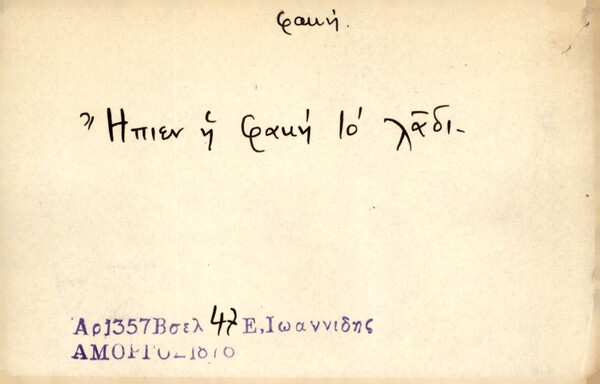 φακή.
Ἤπιεν ἡ φακή τό λᾶδι-
Αρ1357Βσελ 47 Ε,Ιωαννιδης
ΑΜΟΡΓΟΣ1876